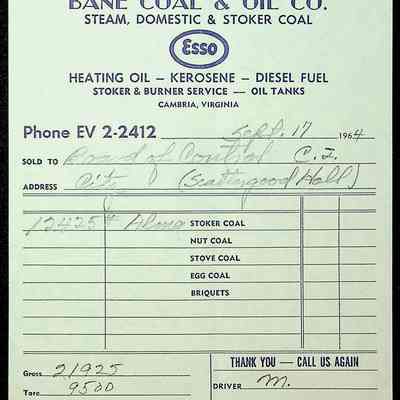 BANE COAL & OIL CO.
STEAM, DOMESTIC & STOKER COAL
Esso
HEATING OIL — KEROSENE — DIESEL FUEL
STOKER & BURNER SERVICE — OIL TANKS
CAMBRIA, VIRGINIA
Phone EV 2-2412 Sept. 17 1964
SOLD TO Board of Control C. I.
ADDRESS City (Scattergood Hall)
12425 # Along STOKER COAL
NUT COAL
STOVE COAL
EGG COAL
BRIQUETS
Gross 21925 THANK YOU — CALL US AGAIN
Tare 9500 DRIVER M.